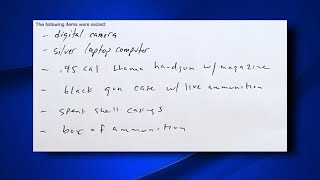 The following items were seized:
- digital camera
- silver laptop computer
- .45 cal Llama handgun w/magazine
- black gun case w/ live ammunition
- spent shell casings
- box of ammunition